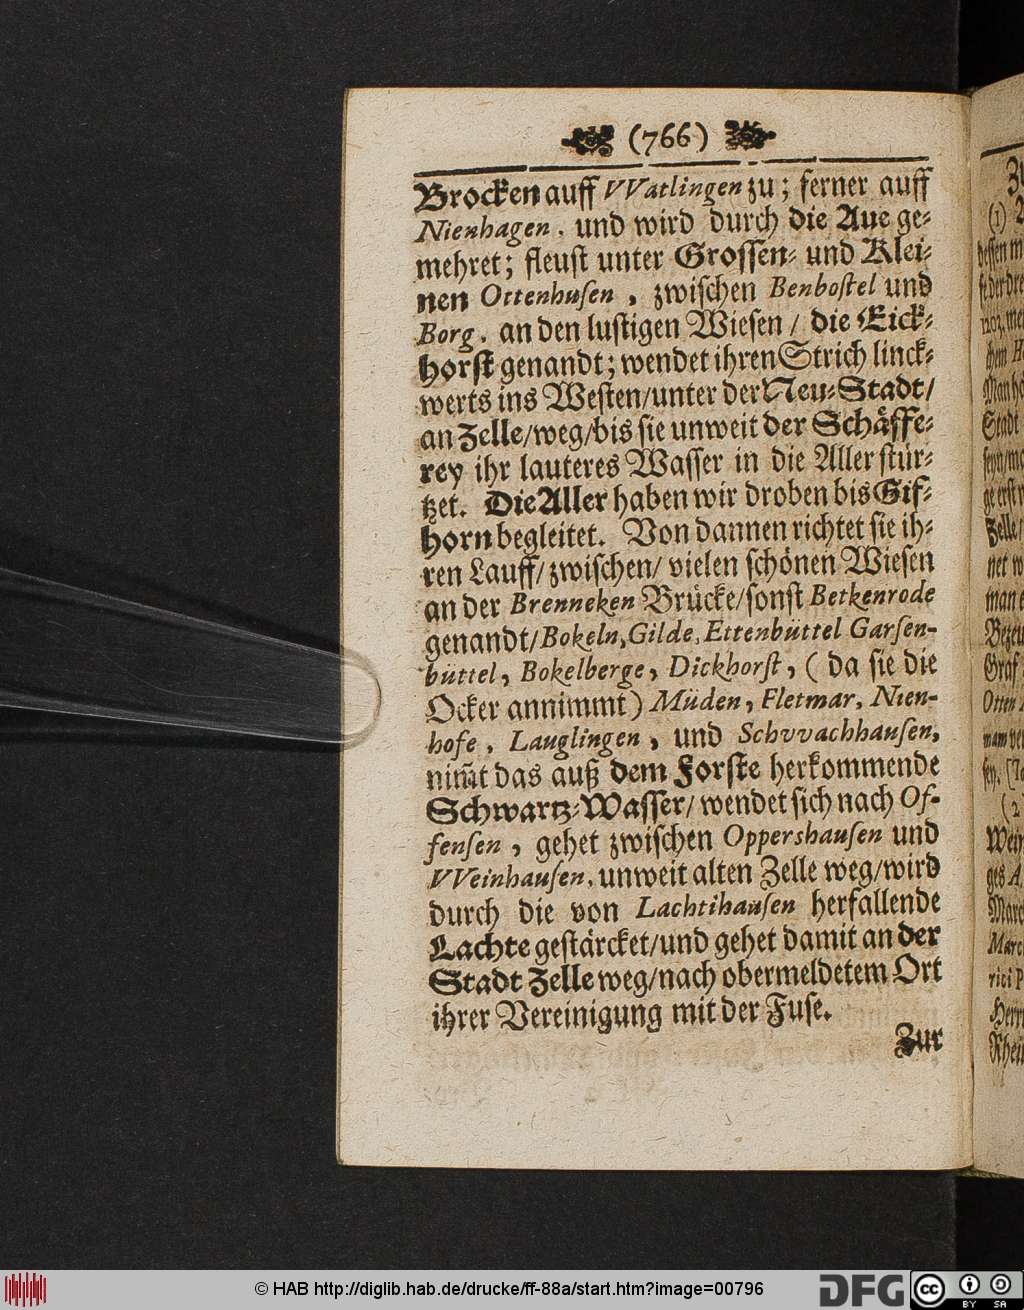 (766)
Brocken auff VVatlingen zu; ferner auff
Nienhagen, und wird durch die Aue ge-
mehret; fleust unter Grossen- und Klei-
nen Ottenhusen, zwischen Benbostel und
Borg, an den lustigen Wiesen / die Eick-
horst genandt; wendet ihren Strich linck-
werts ins Westen/unter der Neu-Stadt/
an Zelle/weg/bis sie unweit der Schäffe-
rey ihr lauteres Wasser in die Aller stür-
tzet. Die Aller haben wir droben bis Gif-
horn begleitet. Von dannen richtet sie ih-
ren Lauff/zwischen/ vielen schönen Wiesen
an der Brenneken Brücke/sonst Betkenrode
genandt/Bokeln, Gilde, Ettenbüttel Garsen-
büttel, Bokelberge, Dickhorst, (da sie die
Ocker annimmt) Müden, Fletmar, Nien-
hofe, Lauglingen, und Schvvachhausen,
nim̃t das auß dem Forste herkommende
Schwartz-Wasser/ wendet sich nach Of-
fensen, gehet zwischen Oppershausen und
VVeinhausen, unweit alten Zelle weg/wird
durch die von Lachtihausen herfallende
Lachte gestärcket/und gehet damit an der
Stadt Zelle weg/nach obermeldetem Ort
ihrer Vereinigung mit der Fuse.
Zur
© HAB http://diglib.hab.de/drucke/ff-88a/start.htm?image=00796
DFG
cc BY SA